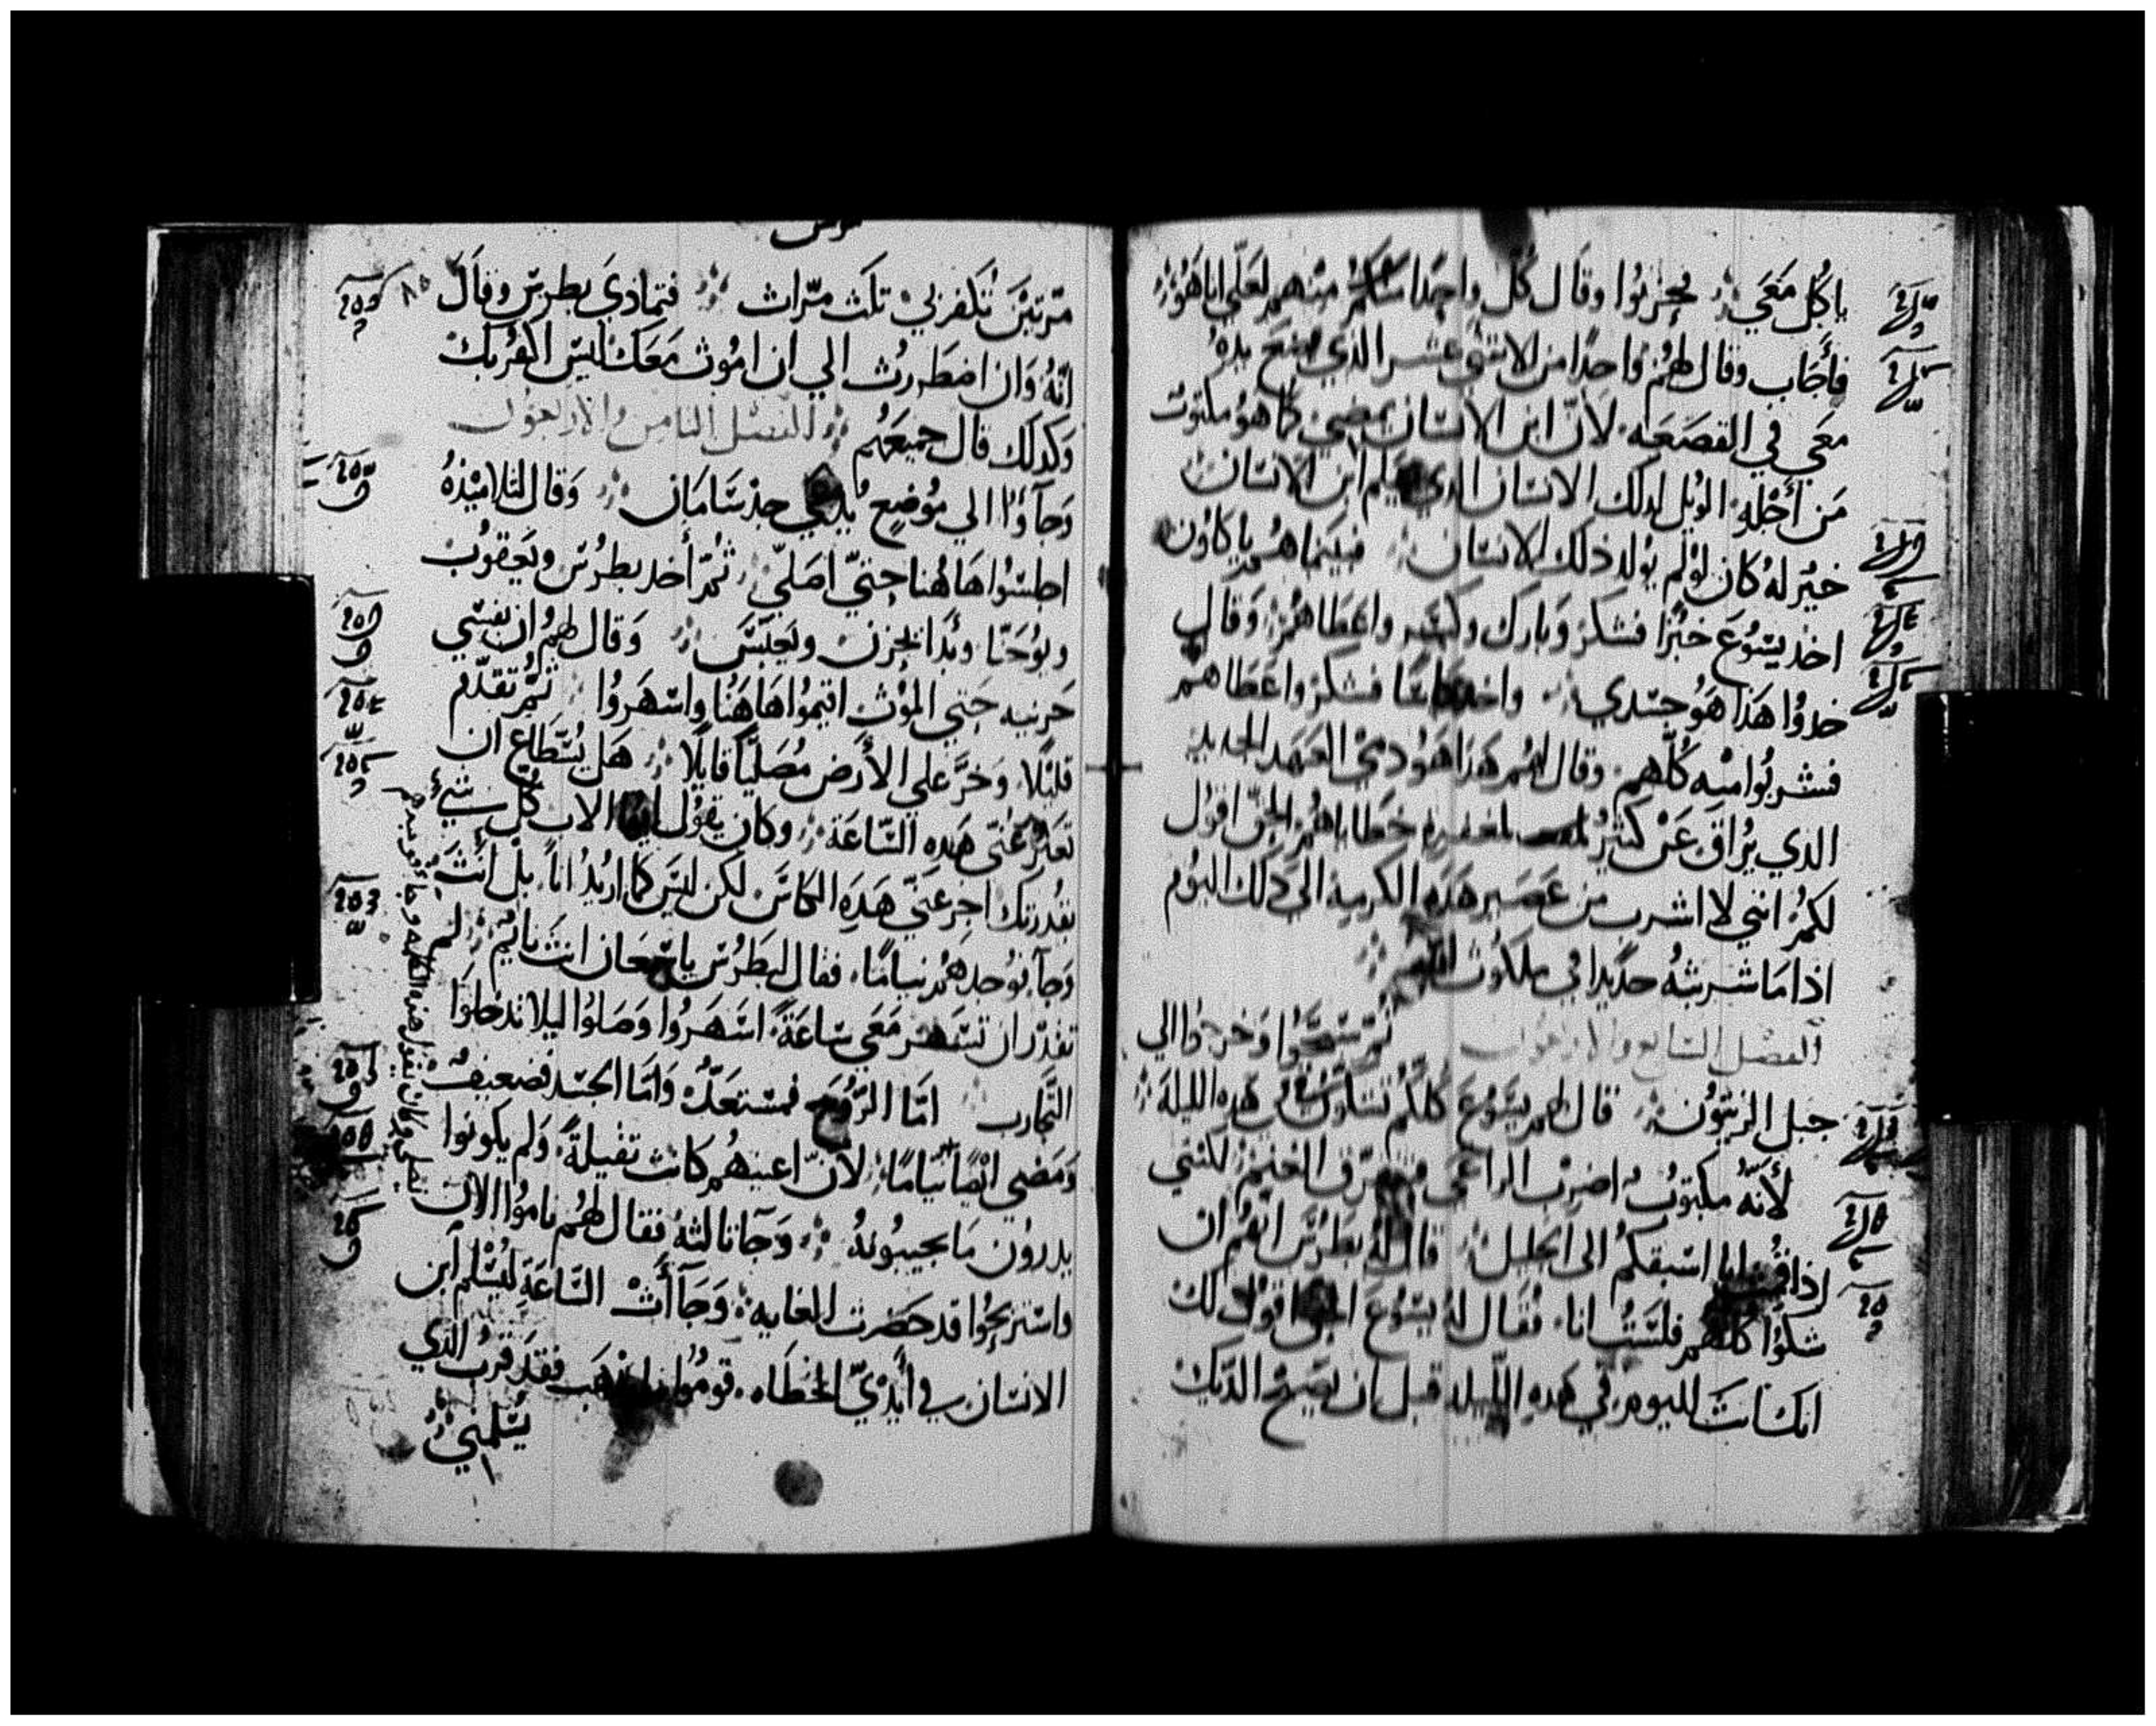 ياكل معي فحزنوا وقال كل واحدا منهم لعلي اناهو
فأجاب وقال لهم واحدا من الاتني عشر الذي يضع يده
معي في القصعه لان ابن الانسان يمضي كما هو مكتوب
من أجله الويل لدلك الانسان الدي يسلم ابن الانسان
خير له كان لو لم يولد ذلك الانسان فبينما هم ياكلون
اخد يسوع خبزا فشكر وبارك وكسر واعطاهم وقال
خدوا هدا هو جسدي واخد كاسا فشكر واعطاهم
فشربوا منه كلهم وقال لهم هدا هو دمي العهد الجديد
الدي يراق عن كثير لمغفرة خطاياهم الحق اقول
لكم انني لا اشرب من عصير هده الكرمة الى دلك اليوم
اذا ما شربته جديدا في ملكوت الله
الفصل السابع والاربعون ثم سبحوا وخرجوا الي
جبل الزيتون قال لهم يسوع كلكم تشكون في هده الليلة
لأنه مكتوب اضرب الراعي فتفرق الغنم لكنني
اذا قمت اسبقكم الى الجليل قال له بطرس انهم ان
شكوا كلهم فلست انا فقال له يسوع الحق اقول لك
انك انت اليوم في هده الليله قبل ان يصيح الديك
مرقس
مرتين تكفر بي تلت مرات فتمادي بطرس وقال
انه وان اضطررت الي ان اموت معك ليس اكفر بك
وكدلك قال جميعهم الفصل التامن والاربعون
وجاؤا الي موضع يدعي جدسامان وقال لتلاميذه
اجلسوا هاهنا حتي اصلي ثم أخد بطرس ويعقوب
ويوحنا وبدا يحزن ويعبس وقال لهم ان نفسي
حزينه حتي الموت اقيموا هاهنا واسهروا ثم تقدم
قليلا وخر علي الأرض مصليا قايلا هل يستطاع ان
تعبر عني هده الساعة وكان يقول ايها الاب كل شيء
بقدرتك اجز عني هده الكاس لكن ليس كما اريد انا بل أنت
وجا فوجدهم نياما فقال لبطرس يا سمعان انت نايم لم
تقدر ان تسهر معي ساعة اسهروا وصلوا ليلا تدخلوا
التجارب اما الروح فمستعد واما الجسد فضعيف
ومضي ايضا
نياما لان اعينهم كانت تقيلة ولم يكونوا
يدرون ما يجيبونه وجا تالته فقال لهم ناموا الان
واستريحوا قد حضرت الغايه وجاأت الساعة ليسلم ابن
الانسان في أيدي الخطاه قوموا نذهب فقد قرب الذي
يسلمني
يصلي وكان يقول هذه الكلمه وجا